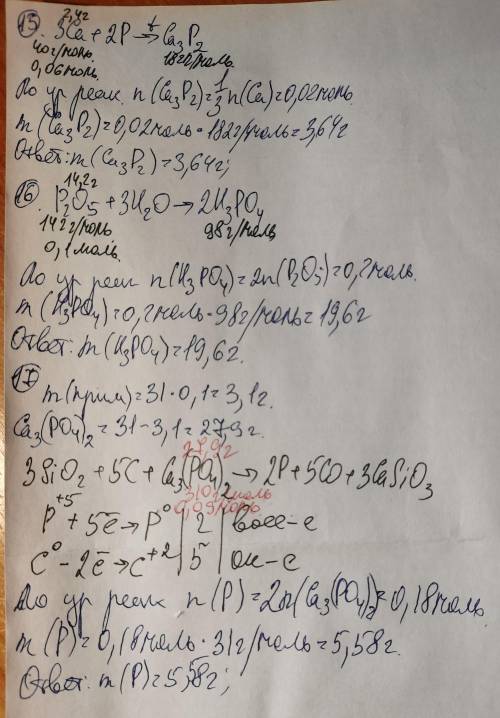 15) 2,4г
3Ca + 2P →t Ca3P2
40г/моль 182г/моль
0,06моль.
По ур реак. n(Ca3P2)=1/3n(Ca)=0,02моль.
m(Ca3P2)=0,02моль·182г/моль=3,64г
Ответ: m(Ca3P2)=3,64г;
16) 14,2г
P2O5 + 3H2O → 2H3PO4
142г/моль 98г/моль
0,1моль.
По ур реак n(H3PO4)=2n(P2O5)=0,2моль.
m(H3PO4)=0,2моль·98г/моль=19,6г
Ответ: m(H3PO4)=19,6г.
17)
m(прим)=31·0,1=3,1г.
Ca3(PO4)2=31-3,1=27,9г.
27,9г
3SiO2 + 5C + Ca3(PO4)2 → 2P + 5CO + 3CaSiO3
310г/моль
0,09моль
P+5 + 5e → P0 | 2 | восс-е
C0 - 2e → C+2 | 5 | ок-е
По ур реак n(P)=2n(Ca3(PO4)2)=0,18моль
m(P)=0,18моль·31г/моль=5,58г.
Ответ: m(P)=5,58г;